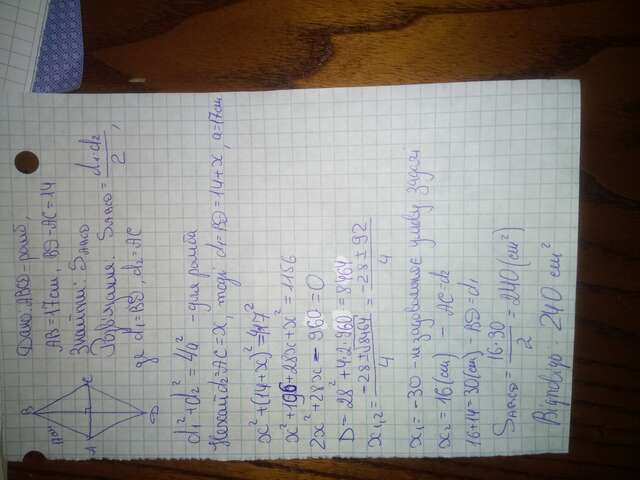 Дано: ABCD - ромб,
AB = 17см, BD - AC = 14
Знайти: S_ABCD
Розв'язання: S_ABCD = d₁·d₂ / 2,
де d₁ = BD, d₂ = AC
d₁² + d₂² = 4a² - для ромба
Нехай d₂ = AC = x, тоді d₁ = BD = 14 + x, a = 17см
x² + (14 + x)² = 4·17²
x² + 196 + 28x + x² = 1156
2x² + 28x - 960 = 0
D = 28² + 4·2·960 = 8464
x₁,₂ = (-28 ± √8464) / 4 = (-28 ± 92) / 4
x₁ = -30 - не задовольняє умову задачі
x₂ = 16 (см) - AC = d₂
16 + 14 = 30 (см) - BD = d₁
S_ABCD = 16·30 / 2 = 240 (см²)
Відповідь: 240 см²
B
A
C
D
17см